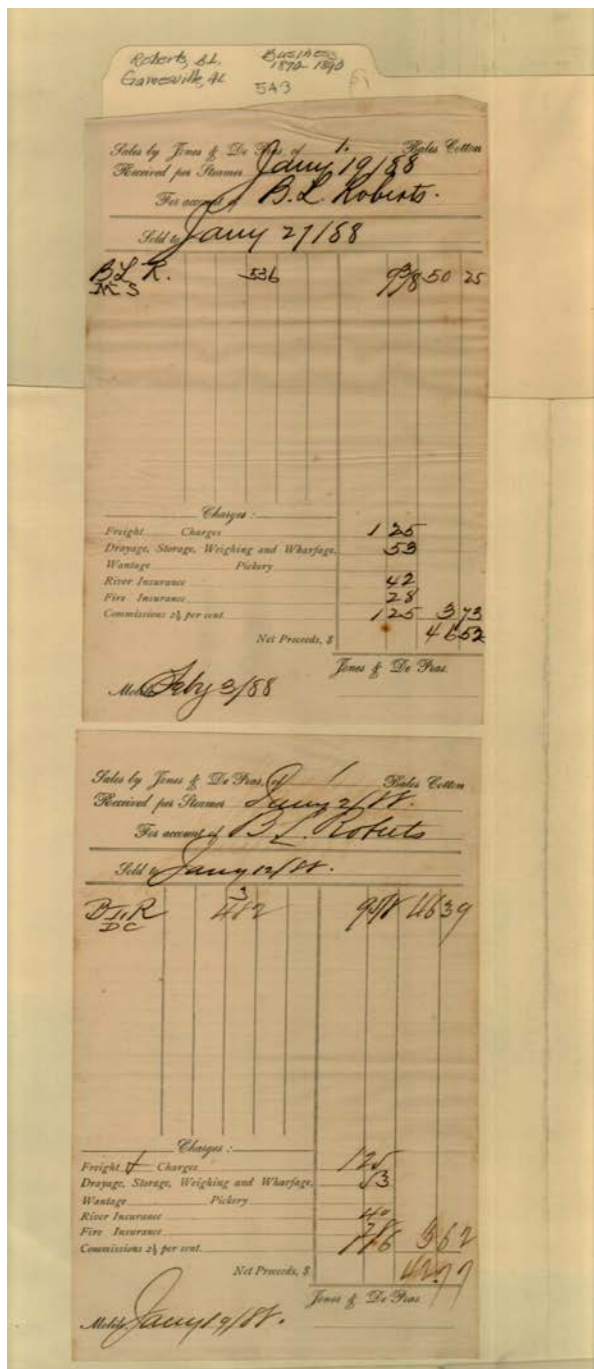 Roberts, B.L. Business
Gainesville, AL 1870-1890
5A3
Sales by Jones & De Fras. of 1. Bales Cotton
Received per Steamer Jany 19/88
For account of B. L. Roberts.
Sold to Jany 27/88
B L R. 536 9 3/8 50 25
M S
Charges:
Freight Charges 1 25
Drayage, Storage, Weighing and Wharfage, 53
Wantage Pickery
River Insurance 42
Fire Insurance 28
Commissions 2½ per cent. 1 25 3 73
Net Proceeds, $ 46 52
Jones & De Fras.
Mobile Feby 3/88
Sales by Jones & De Fras, of 1 Bales Cotton
Received per Steamer Jany 2/88.
For account of B. L. Roberts
Sold to Jany 12/88.
B L R 3 482 9 5/8 46 39
D C
Charges:
Freight & Charges 1 25
Drayage, Storage, Weighing and Wharfage, 53
Wantage Pickery
River Insurance 40
Fire Insurance 28
Commissions 2½ per cent. 1 16 3 62
Net Proceeds, $ 42 77
Jones & De Fras.
Mobile Jany 19/88.